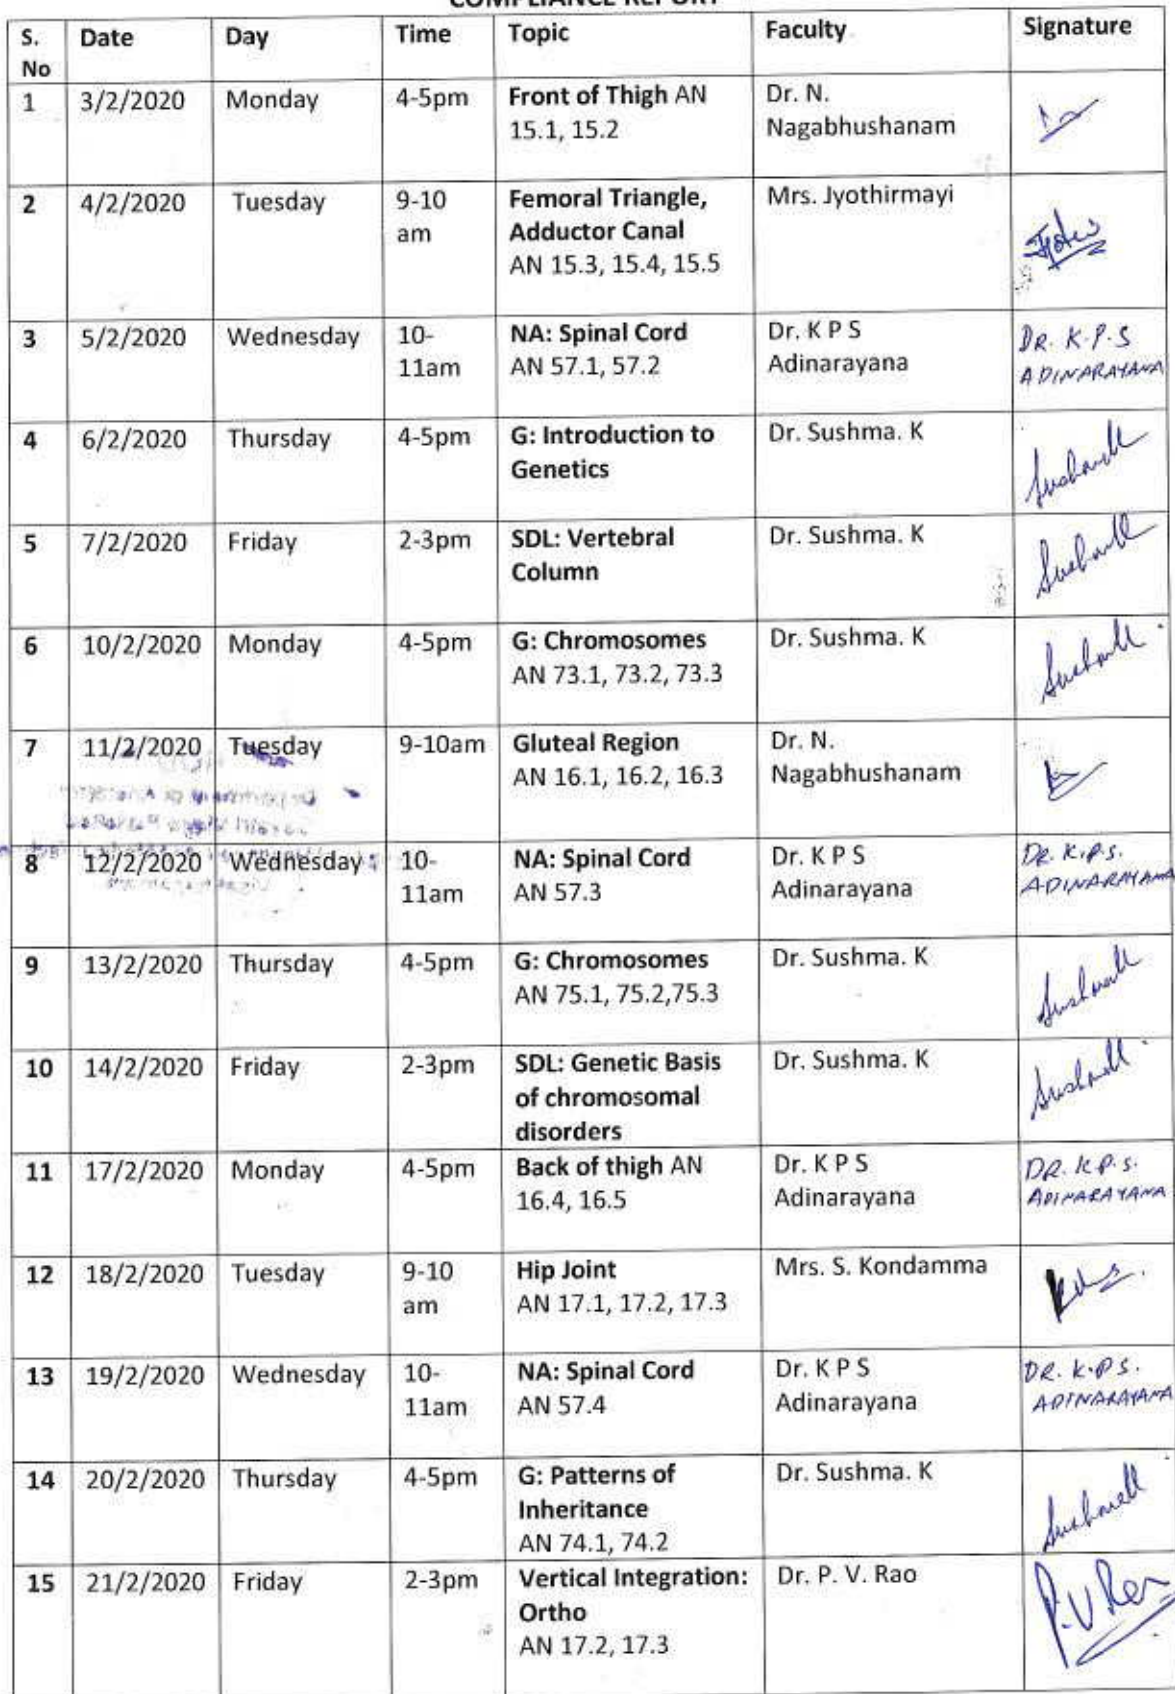 COMPLIANCE REPORT
S. No | Date | Day | Time | Topic | Faculty | Signature
1 | 3/2/2020 | Monday | 4-5pm | Front of Thigh AN 15.1, 15.2 | Dr. N. Nagabhushanam
2 | 4/2/2020 | Tuesday | 9-10 am | Femoral Triangle, Adductor Canal AN 15.3, 15.4, 15.5 | Mrs. Jyothirmayi
3 | 5/2/2020 | Wednesday | 10-11am | NA: Spinal Cord AN 57.1, 57.2 | Dr. K P S Adinarayana | DR. K.P.S ADINARAYANA
4 | 6/2/2020 | Thursday | 4-5pm | G: Introduction to Genetics | Dr. Sushma. K
5 | 7/2/2020 | Friday | 2-3pm | SDL: Vertebral Column | Dr. Sushma. K
6 | 10/2/2020 | Monday | 4-5pm | G: Chromosomes AN 73.1, 73.2, 73.3 | Dr. Sushma. K
7 | 11/2/2020 | Tuesday | 9-10am | Gluteal Region AN 16.1, 16.2, 16.3 | Dr. N. Nagabhushanam
8 | 12/2/2020 | Wednesday | 10-11am | NA: Spinal Cord AN 57.3 | Dr. K P S Adinarayana | DR. K.P.S. ADINARAYANA
9 | 13/2/2020 | Thursday | 4-5pm | G: Chromosomes AN 75.1, 75.2,75.3 | Dr. Sushma. K
10 | 14/2/2020 | Friday | 2-3pm | SDL: Genetic Basis of chromosomal disorders | Dr. Sushma. K
11 | 17/2/2020 | Monday | 4-5pm | Back of thigh AN 16.4, 16.5 | Dr. K P S Adinarayana | DR. K.P.S. ADINARAYANA
12 | 18/2/2020 | Tuesday | 9-10 am | Hip Joint AN 17.1, 17.2, 17.3 | Mrs. S. Kondamma
13 | 19/2/2020 | Wednesday | 10-11am | NA: Spinal Cord AN 57.4 | Dr. K P S Adinarayana | DR. K.P.S. ADINARAYANA
14 | 20/2/2020 | Thursday | 4-5pm | G: Patterns of Inheritance AN 74.1, 74.2 | Dr. Sushma. K
15 | 21/2/2020 | Friday | 2-3pm | Vertical Integration: Ortho AN 17.2, 17.3 | Dr. P. V. Rao | P.V Rao